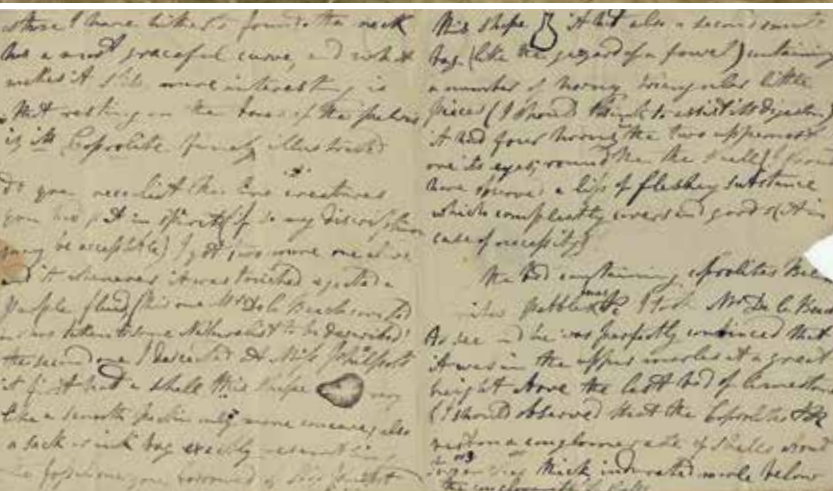 where I have hitherto found the neck
has a most graceful curve, and what
makes it still more interesting is
that resting on the bones of the pelvis
is its Coprolite finely illustrated
Do you recollect the two creatures
you had put in spirits (if so my discription
may be acceptable) I got two more one alive
and it whenever it was touched ejected a
purple fluid (this one Mr De la Beche
taken to some Naturalist to be described)
the second one I desected at Miss Philpots
it first had a shell this shape very
like a smooth only more concave, also
a sack or ink bag exactly
the fossil one you borrowed of Miss Philpot
this shape it had also a second
bag (like the gizzard of a fowel) containing
a number of horny triangular little
pieces (I should think to assist its digestion)
it had four horns the two uppermost
its eyes, round the the shell
a lip of fleshey substance
which compleatly covers and gaurds it in
case of necessity)
The bed containing coprolites
pebbles &c I took Mr De la
to see and he was perfectly convinced that
it was in the upper marles at a great
height above the last bed of limestone
(I should observed that the Coprolites &c
rest on a conglomerate of shells about
2 or 3 thick indurated marle below
the conglomerate of shells